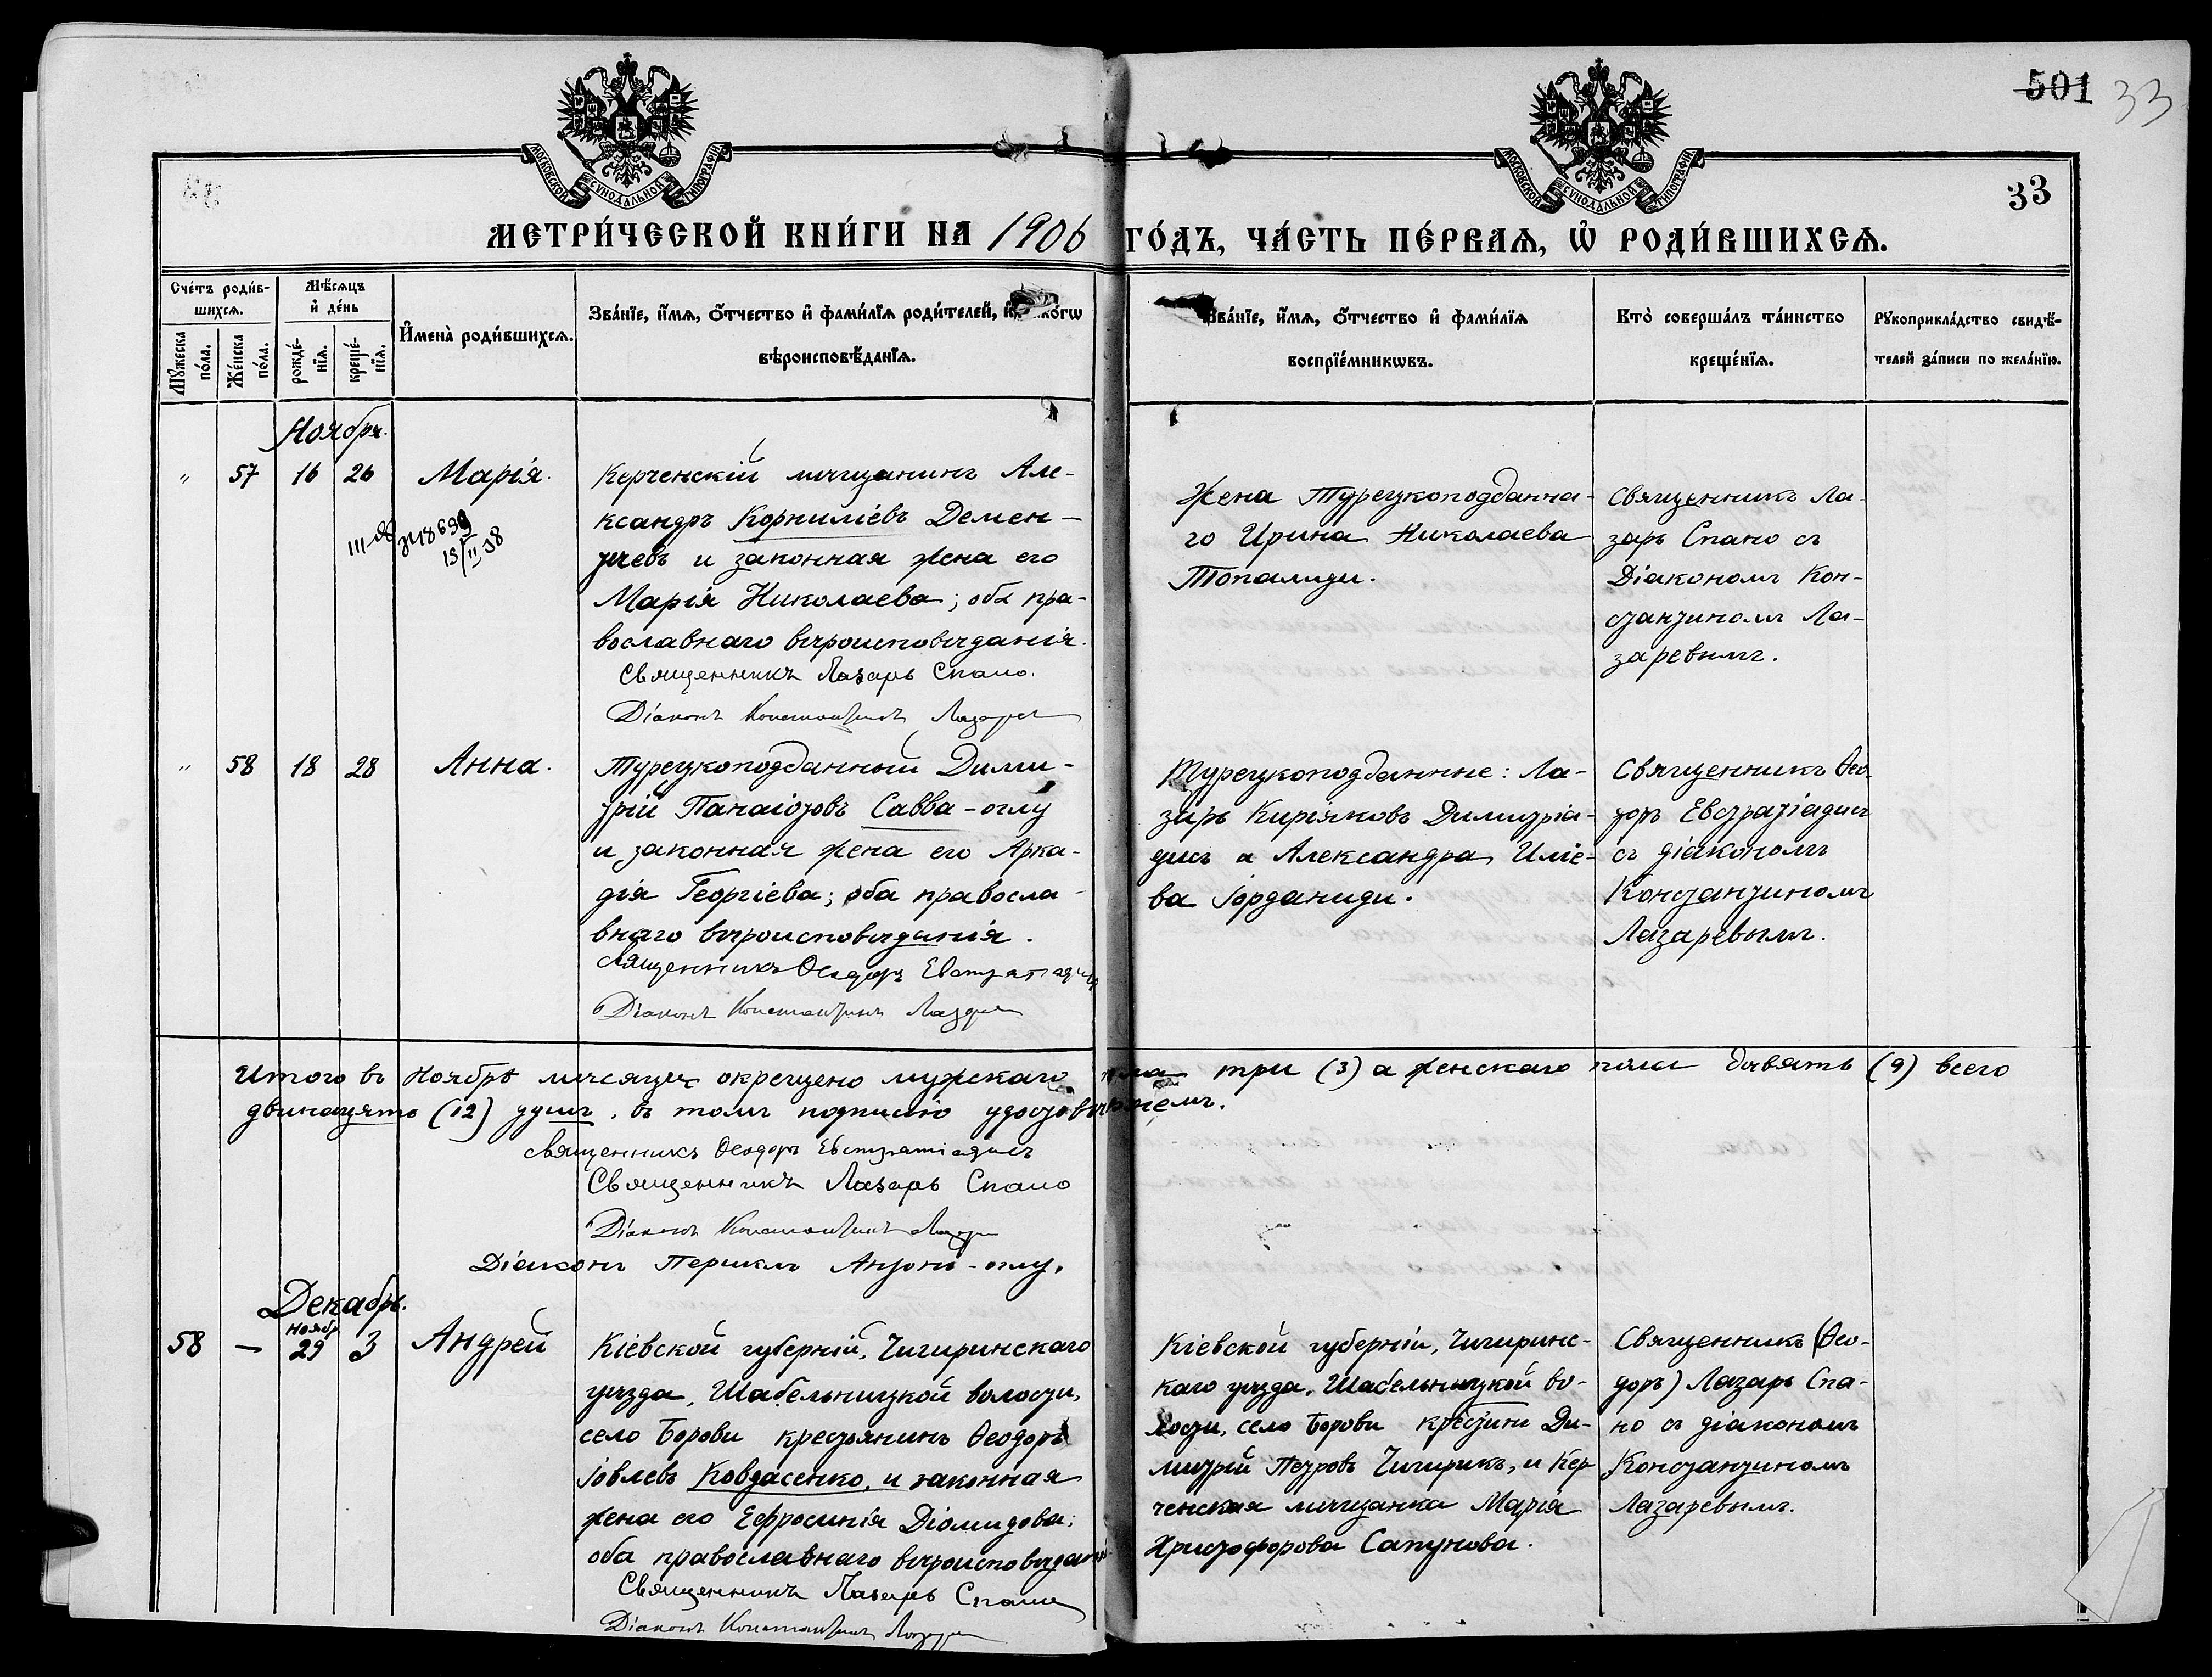 501 33
МОСКОВСКОЙ СѴНОДАЛЬНОЙ ТИПОГРАФІИ
МОСКОВСКОЙ СѴНОДАЛЬНОЙ ТИПОГРАФІИ
33
МЕТРИ́ЧЕСКОЙ КНИ́ГИ НА 1906 ГО́ДЪ, ЧА́СТЬ ПЕ́РВАѦ, Ѡ҆ РОДИ́ВШИХСѦ.
Сче́тъ роди́в-
шихсѧ.
Мꙋ́жеска по́ла.
Же́нска по́ла.
Мѣ́сѧцъ
и҆ де́нь
рожде́-
нїѧ.
креще́-
нїѧ.
И҆мена̀ роди́вшихсѧ.
Зва́нїе, и҆́мѧ, ѻ҆́тчество и҆ фами́лїѧ роди́телей, и҆
вѣроисповѣ́данїѧ.
Зва́нїе, и҆́мѧ, ѻ҆́тчество и҆ фами́лїѧ
воспрїе́мникѡвъ.
Кто̀ соверша́лъ та́инство
креще́нїѧ.
Рꙋкоприкла́дство свидѣ́-
телей за́писи по жела́нїю.
Ноября.
" 57 16 26 Марія.
Керченскій мѣщанинъ Але-
ксандръ Корниліевъ Демен-
тьевъ и законная жена его
Марія Николаева; оба пра-
вославнаго вѣроисповѣданія.
Священникъ Лазарь Спано.
Діаконъ Константинъ Лазарев
Жена Турецкоподданна-
го Ирина Николаева
Топалиди.
Священникъ Ла-
зарь Спано съ
Діакономъ Кон-
стантиномъ Ла-
заревымъ.
" 58 18 28 Анна.
Турецкоподданный Дими-
трій Панаіотовъ Савва-оглу
и законная жена его Арка-
дія Георгіева; оба правосла-
внаго вѣроисповѣданія.
священникъ Ѳеодоръ Евстратіадисъ
Діаконъ Константинъ Лазарев
Турецкоподданные: Ла-
зарь Киріяковъ Димитріа-
дисъ и Александра Иліе-
ва Іорданиди.
Священникъ Ѳео-
доръ Евстратіадисъ
съ діакономъ
Константиномъ
Лазаревымъ.
Итого въ Ноябрѣ мѣсяцѣ окрещено мужскаго пола три (3) а женскаго пола девять (9) всего
двенадцять (12) душъ, въ томъ подписью удостовѣряемъ.
священникъ Ѳеодоръ Евстратіадисъ
Священникъ Лазарь Спано
Діаконъ Константинъ Лазарев
Діаконъ Периклъ Антонъ-оглу.
Декабрь.
58 — Ноябр 29 3 Андрей
Кіевской губерній, Чигиринскаго
уѣзда, Шабельницкой волости,
село Борови крестьянинъ Ѳеодоръ
Іовлевъ Ковдасенко, и законная
жена его Ефросинія Діомидова;
оба православнаго вѣроисповѣданія
Священникъ Лазарь Спано
Діаконъ Константинъ Лазарев
Кіевской губерніи, Чигиринс-
каго уѣзда, Шабельницкой во-
лости, село Борови крестьян Ди-
митрій Петровъ Чигирикъ, и Кер-
ченская мѣщанка Марія
Христофорова Сапунова.
Священникъ (Ѳео-
доръ) Лазарь Спа-
но съ діакономъ
Константиномъ
Лазаревымъ.